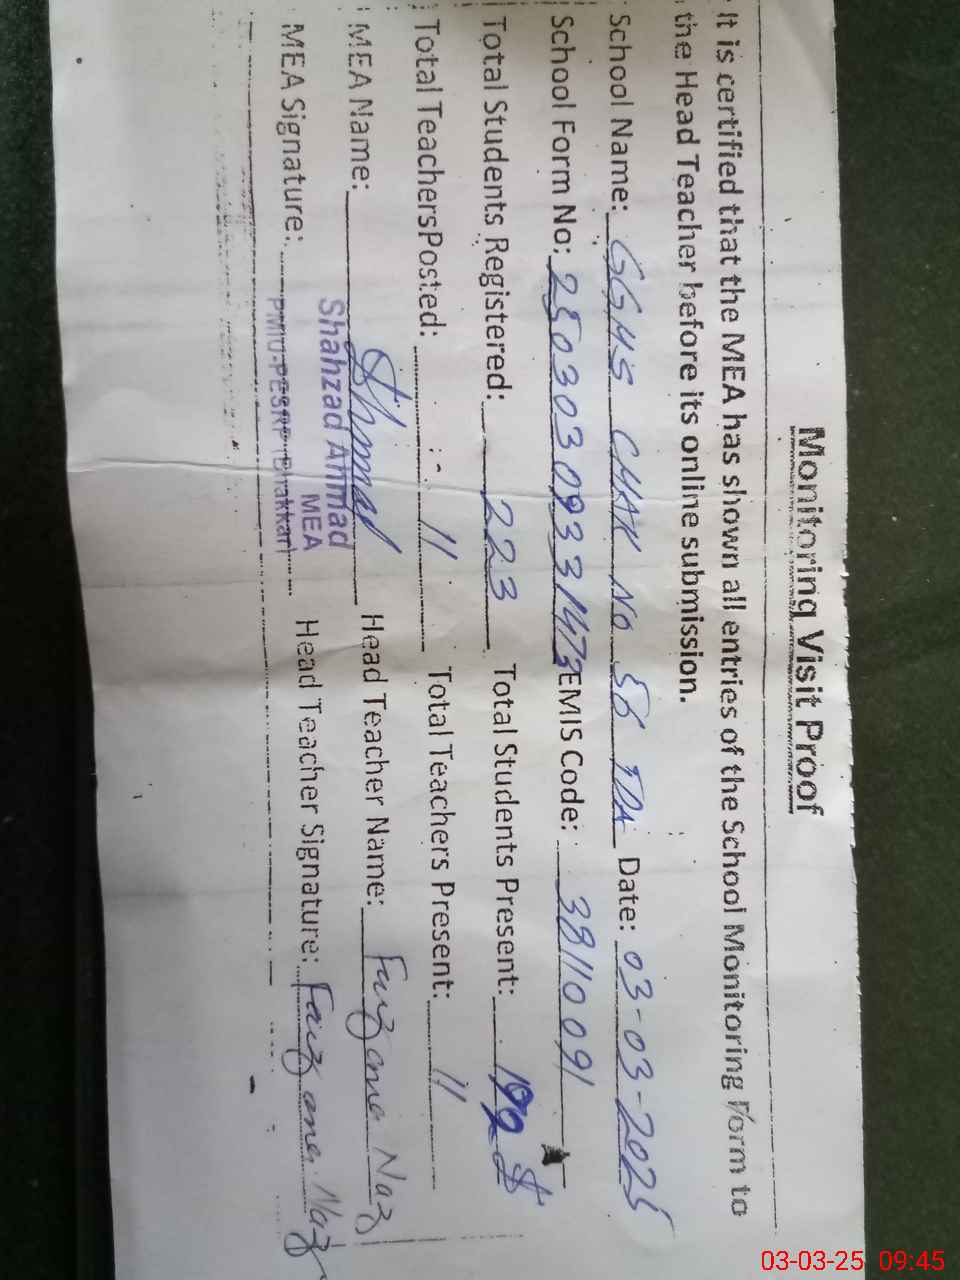 Monitoring Visit Proof
It is certified that the MEA has shown all entries of the School Monitoring Form to
the Head Teacher before its online submission.
School Name: GGHS CHAK No 58 TDA Date: 03-03-2025
School Form No: EMIS Code: 38110091
Total Students Registered: 223 Total Students Present: 192
Total TeachersPosted: 11 Total Teachers Present: 11
MEA Name: Head Teacher Name: Farzana Naz
Shahzad Ahmad
MEA
MEA Signature: PMIU-PESRP (Bhakkar) Head Teacher Signature: Farzana Naz
03-03-25 09:45